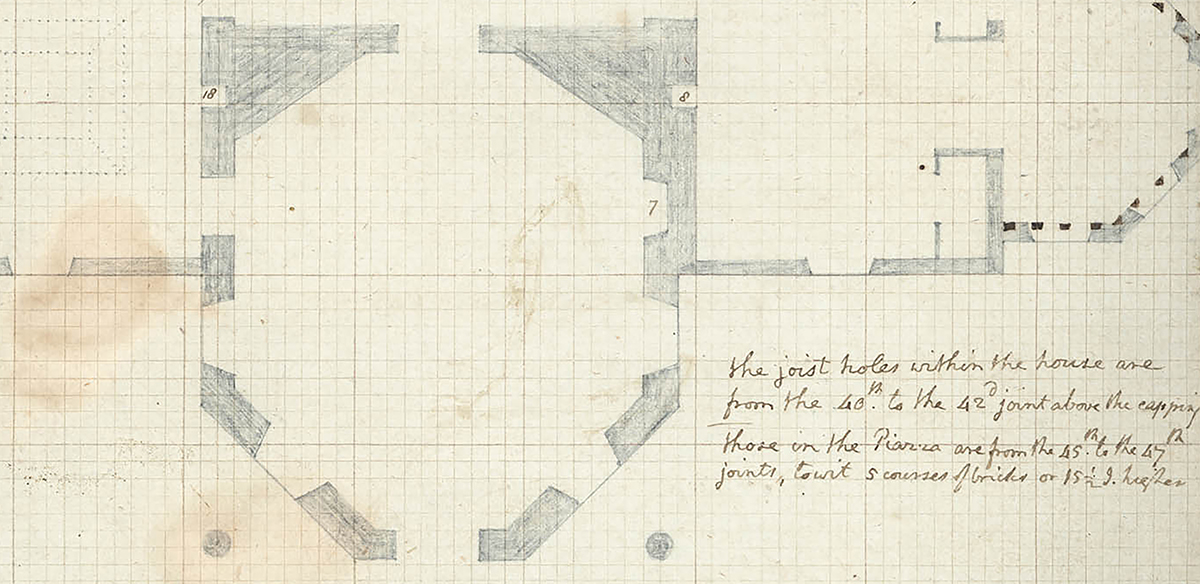 18
8
7
the joist holes within the house are
from the 40th. to the 42d joint above the capping
those in the Piazza are from the 45th. to the 47th
joints, towit 5 courses of bricks or 15½ I. higher